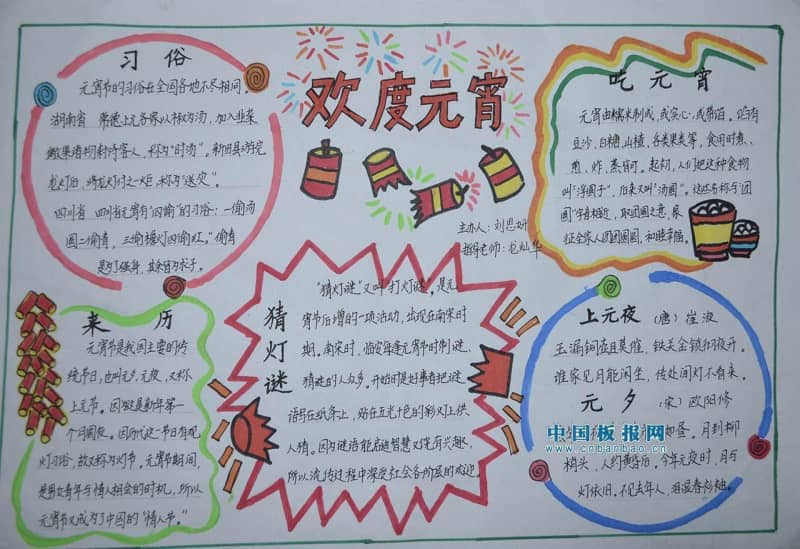 习俗
元宵节的习俗在全国各地不尽相同。
湖南省 常德上元各家以椒为汤，加入韭菜
果诸物，待客人，称为"时汤"。新田县
龙灯后，将龙灯付之一炬，称为"送灾"。
四川省 四川省元宵有"四偷"的习俗：一偷汤
圆二偷青，三偷檐灯四偷红。"偷青
是为了强身，其余皆为求子。
欢度元宵
主办人：刘思妍
指导老师：
吃元宵
元宵由糯米制成，或实心，或带馅。馅有
豆沙，白糖，山楂，各类果类等，食用时煮，
煎，炸，蒸皆可。起初，人们把这种食物
叫"浮圆子"，后来又叫"汤圆"。这些名称与"团
圆"字音相近，取团圆之意，象
征全家人团团圆圆，和睦幸福。
来历
元宵节是我国主要的传
统节日，也叫元夕，元夜，又称
上元节。因为这是新年第一
个月圆夜。因历代这一节日有观
灯习俗，故又称为灯节。元宵节期间，
是男女青年与情人相会的时机，所以
元宵节又成为了中国的"情人节。"
猜灯谜
"猜灯谜"又叫"打灯谜"。是元
宵节后增的一项活动，出现在南宋时
期。南宋时，临安每逢元宵节时制谜，
猜谜的人众多。开始时是好事者把谜
语写在纸条上，贴在五光十色的彩灯上供
人猜。因为谜语能启迪智慧又饶有兴趣，
所以流传过程中深受社会各阶层的欢迎。
上元夜（唐）崔液
玉漏铜壶且莫催，铁关金锁彻夜开。
谁家见月能闲坐，何处闻灯不看来。
元夕（宋）欧阳修
如昼。月到柳
梢头，人约黄昏后，今年元夜时，月与
灯依旧。不见去年人，泪湿春衫袖。
中国板报网
www.cnbanbao.cn